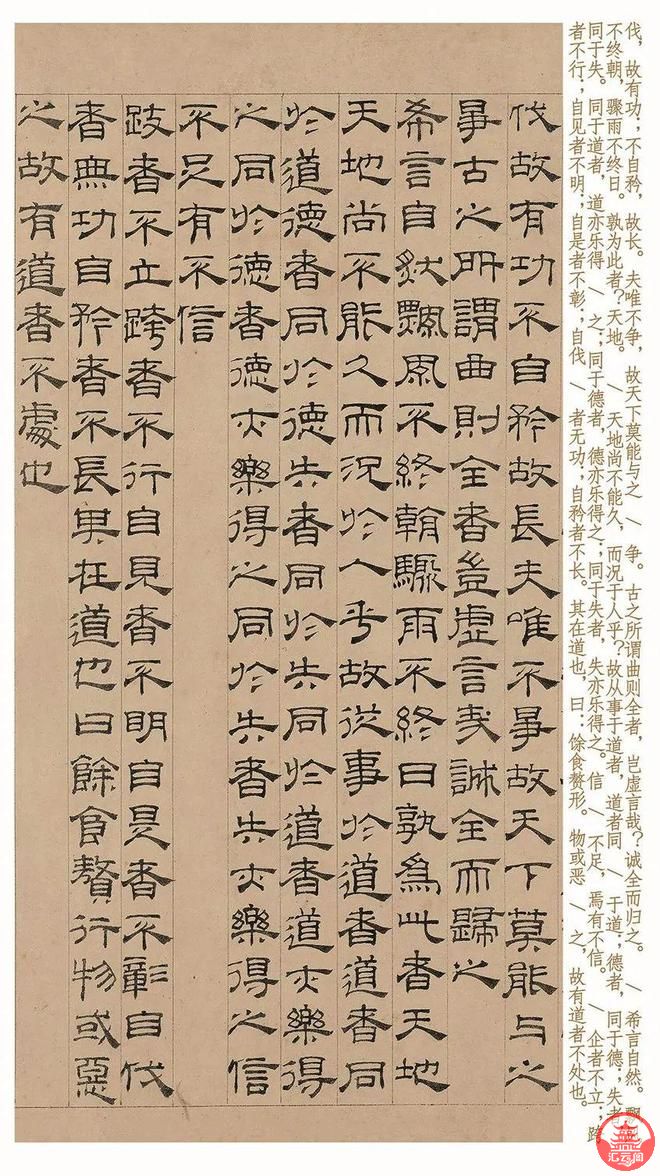 伐，故有功；不自矜，故长。夫唯不争，故天下莫能与之 \ 争。古之所谓曲则全者，岂虚言哉？诚全而归之。 \ 希言自然。飘
不终朝，骤雨不终日。孰为此者？天地。 \ 天地尚不能久，而况于人乎？故从事于道者，道者同 \ 于道；德者，同于德；失者
同于失。同于道者，道亦乐得 \ 之；同于德者，德亦乐得之；同于失者，失亦乐得之。信 \ 不足，焉有不信。 \ 企者不立；跨
者不行；自见者不明；自是者不彰；自伐 \ 者无功；自矜者不长。其在道也，曰：馀食赘形。物或恶 \ 之，故有道者不处也。
伐故有功不自矜故長夫唯不爭故天下莫能与之
爭古之所謂曲則全者豈虛言哉誠全而歸之
希言自然飄風不終朝驟雨不終日孰為此者天地
天地尚不能久而況於人乎故從事於道者道者同
於道德者同於德失者同於失同於道者道亦樂得
之同於德者德亦樂得之同於失者失亦樂得之信
不足有不信
跂者不立跨者不行自見者不明自是者不彰自伐
者無功自矜者不長其在道也曰餘食贅行物或惡
之故有道者不處也
汇云阁